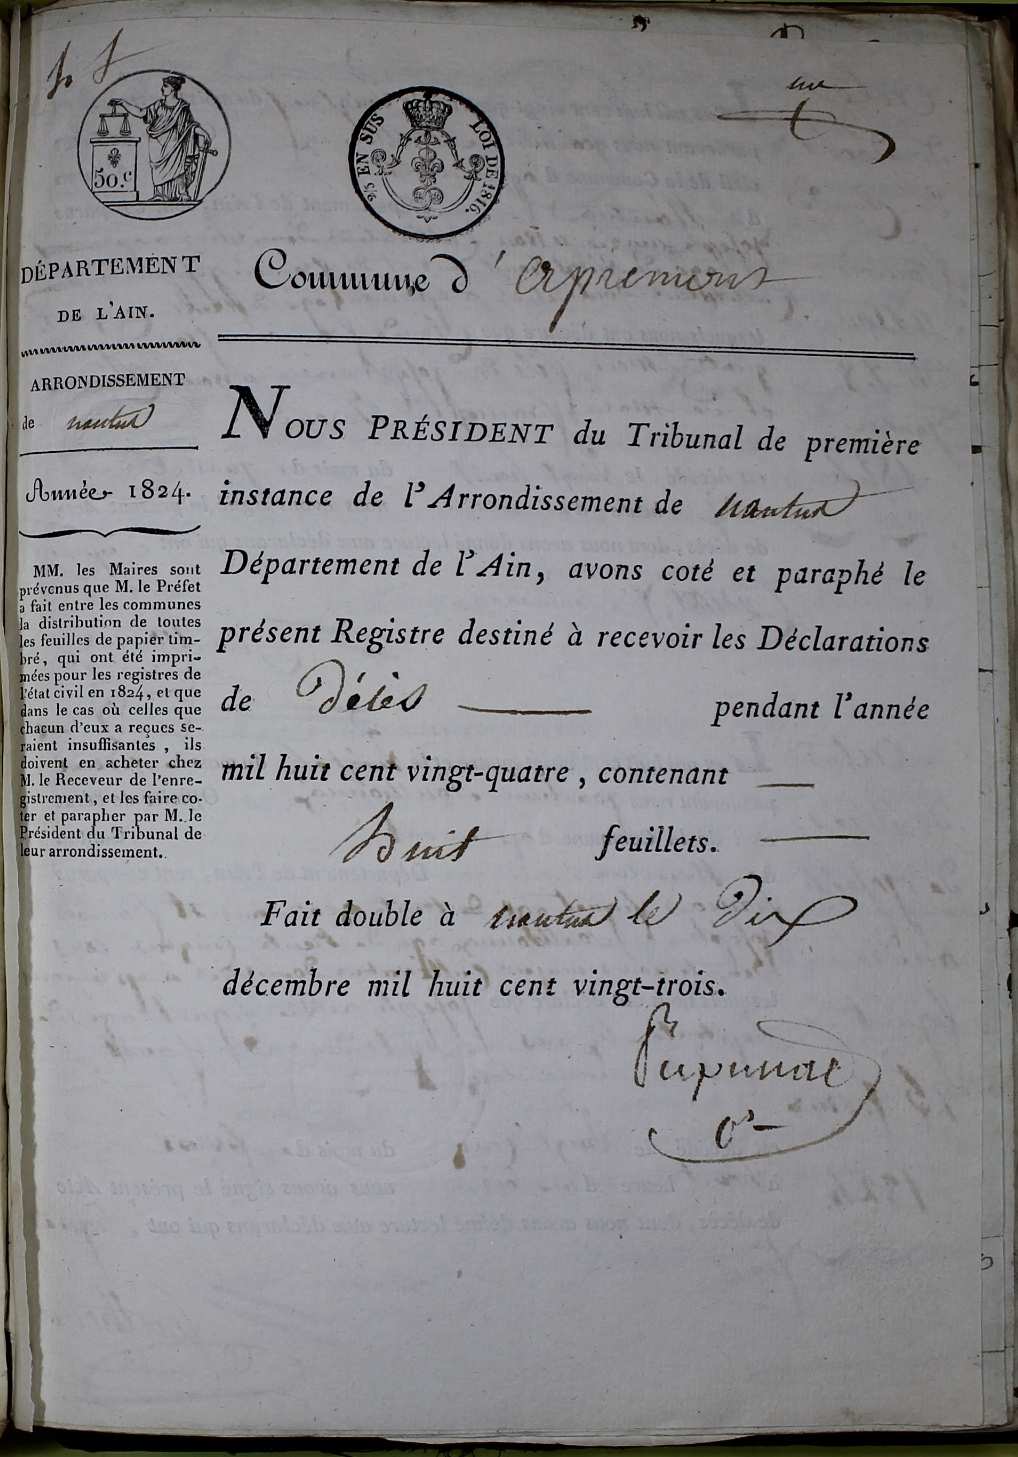 50.c
2/5 EN SUS
LOI DE 1816.
DÉPARTEMENT
DE L'AIN.
ARRONDISSEMENT
de nantua
Année 1824.
MM. les Maires sont
prévenus que M. le Préfet
a fait entre les communes
la distribution de toutes
les feuilles de papier tim-
bré, qui ont été impri-
mées pour les registres de
l'état civil en 1824, et que
dans le cas où celles que
chacun d'eux a reçues se-
raient insuffisantes, ils
doivent en acheter chez
M. le Receveur de l'enre-
gistrement, et les faire co-
ter et parapher par M. le
Président du Tribunal de
leur arrondissement.
Commune d'apremont
NOUS PRÉSIDENT du Tribunal de première
instance de l'Arrondissement de nantua
Département de l'Ain, avons coté et paraphé le
présent Registre destiné à recevoir les Déclarations
de Décès pendant l'année
mil huit cent vingt-quatre, contenant
huit feuillets.
Fait double à nantua le Dix
décembre mil huit cent vingt-trois.